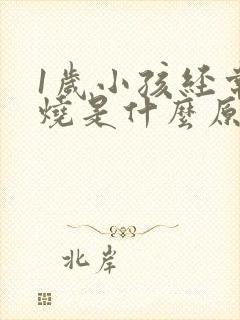 1歲小孩經常
燒是什麼原
北岸